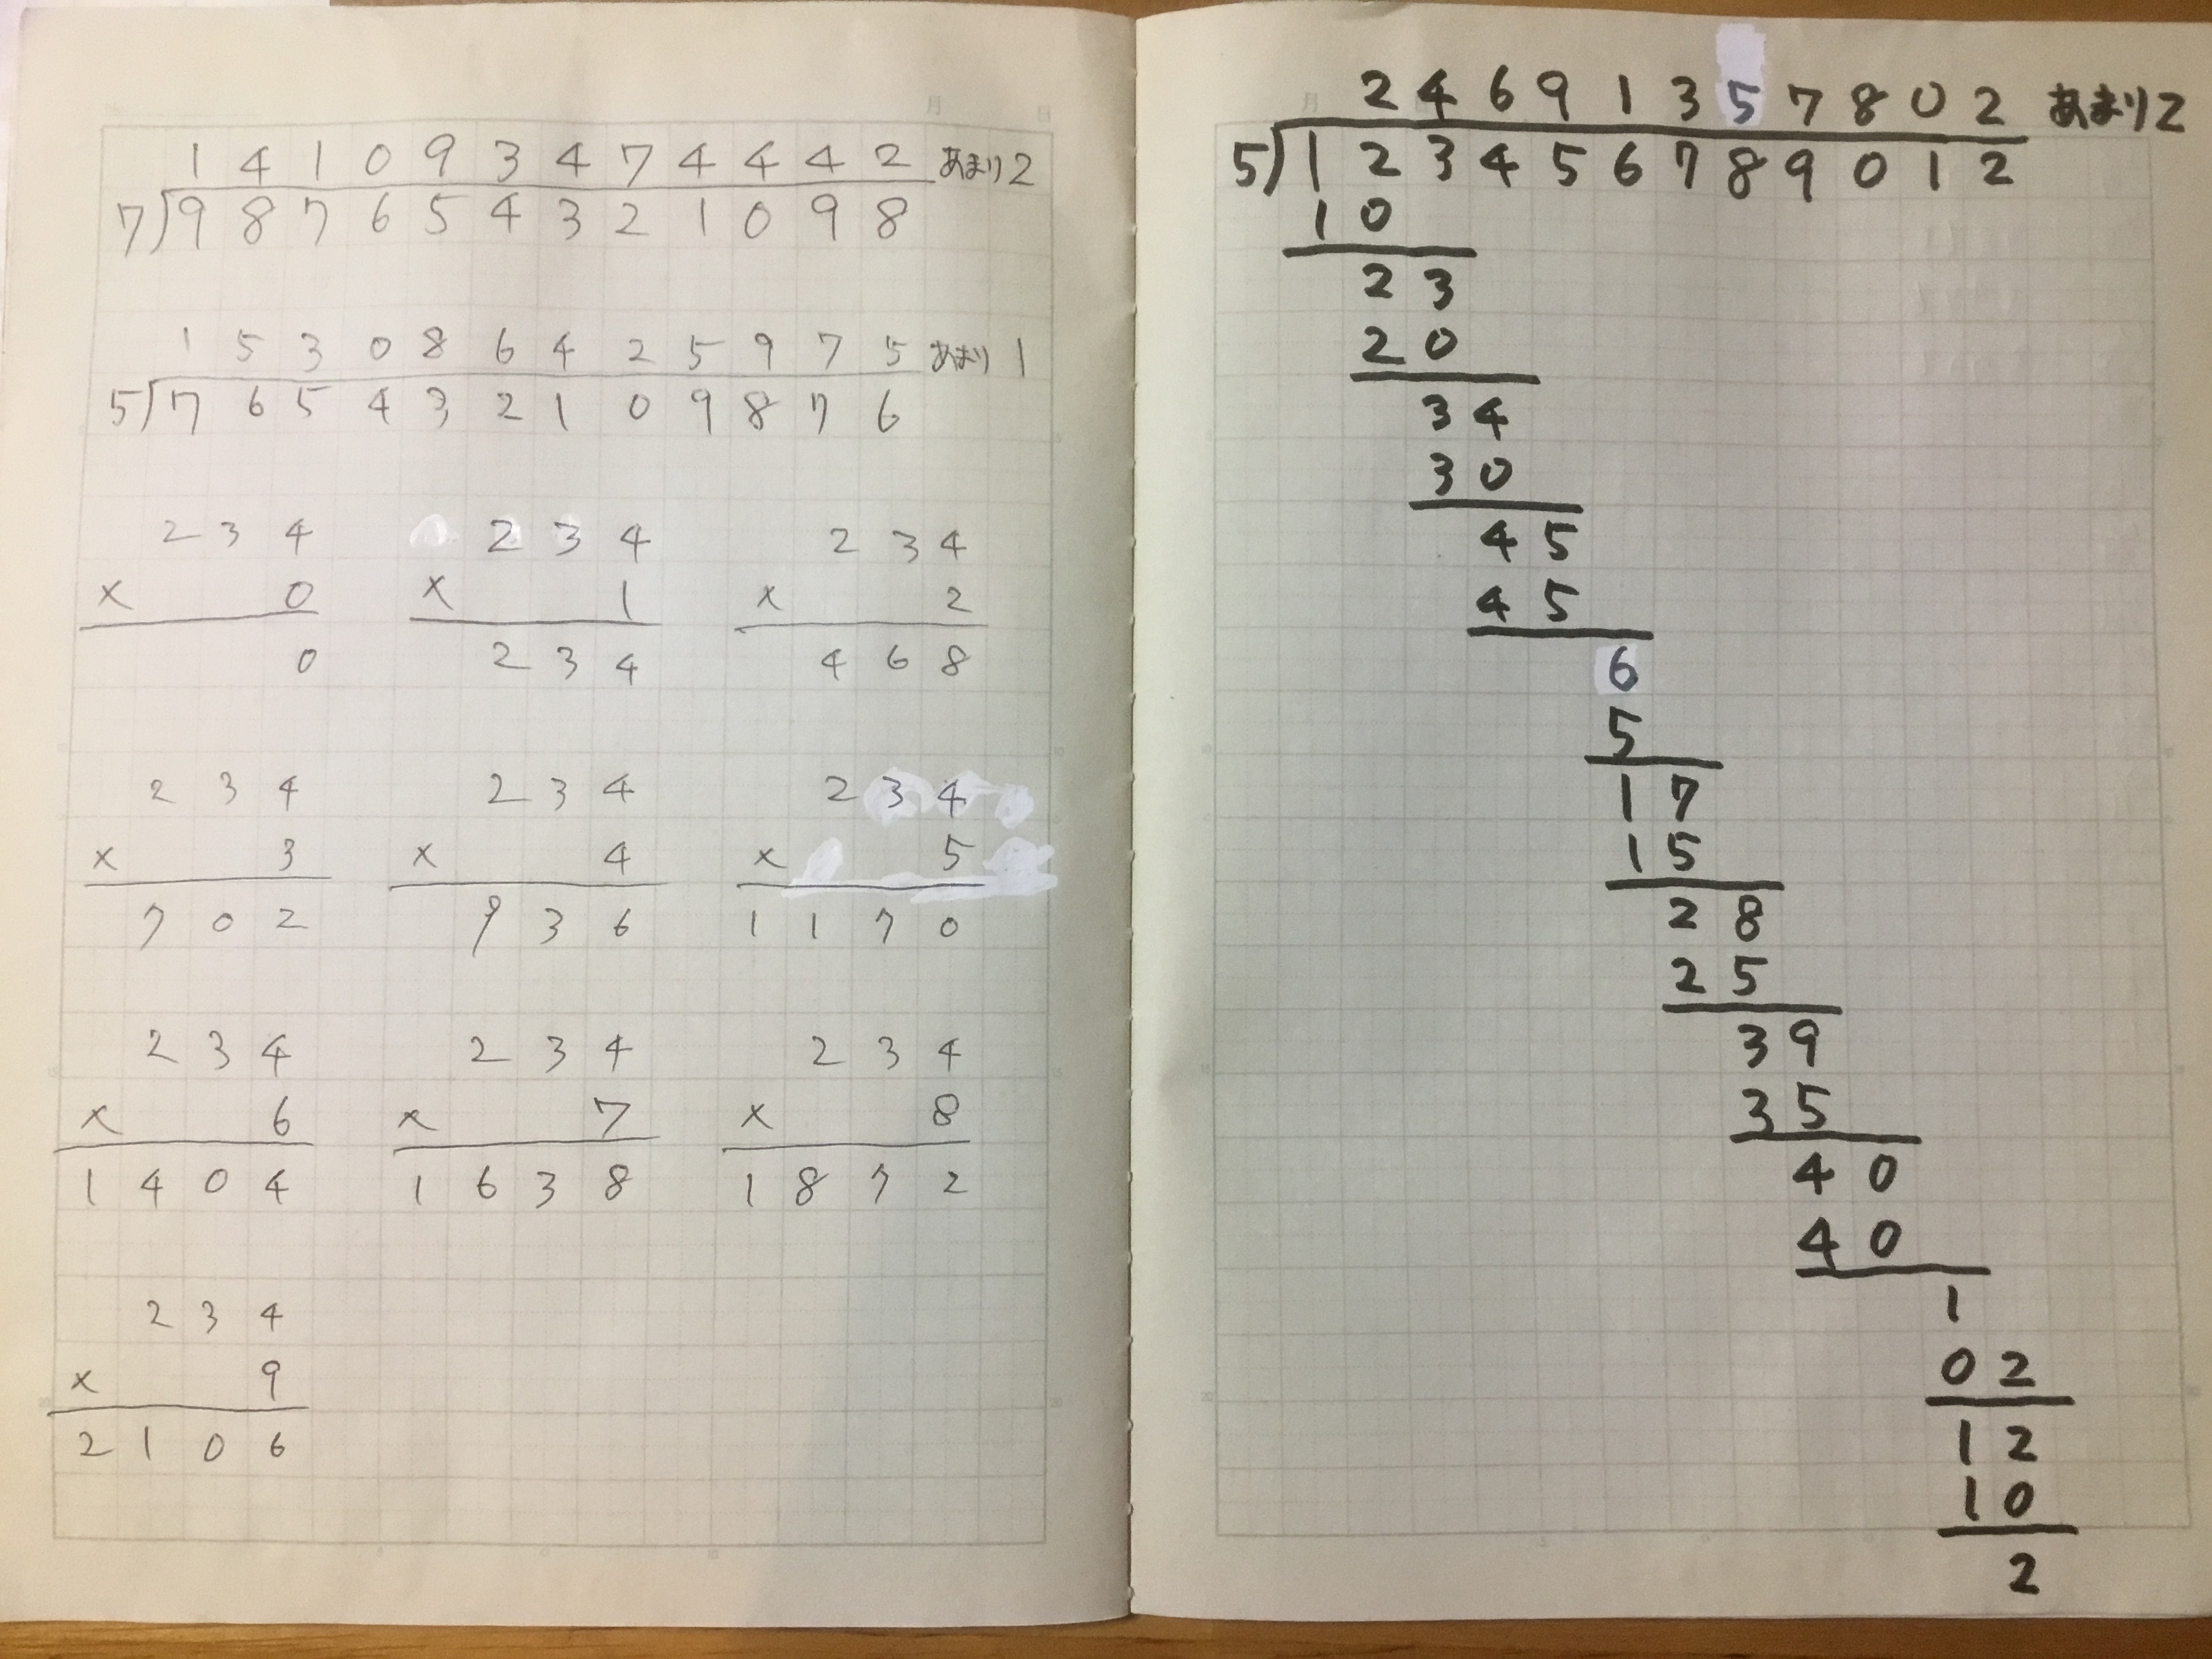 月 日
1 4 1 0 9 3 4 7 4 4 4 2 あまり2
7)9 8 7 6 5 4 3 2 1 0 9 8
1 5 3 0 8 6 4 2 5 9 7 5 あまり1
5)7 6 5 4 3 2 1 0 9 8 7 6
2 3 4 2 3 4 2 3 4
× 0 × 1 × 2
0 2 3 4 4 6 8
2 3 4 2 3 4 2 3 4
× 3 × 4 × 5
7 0 2 9 3 6 1 1 7 0
2 3 4 2 3 4 2 3 4
× 6 × 7 × 8
1 4 0 4 1 6 3 8 1 8 7 2
2 3 4
× 9
2 1 0 6
月 日
2 4 6 9 1 3 5 7 8 0 2 あまり2
5)1 2 3 4 5 6 7 8 9 0 1 2
1 0
2 3
2 0
3 4
3 0
4 5
4 5
6
5
1 7
1 5
2 8
2 5
3 9
3 5
4 0
4 0
1
0 2
1 2
1 0
2